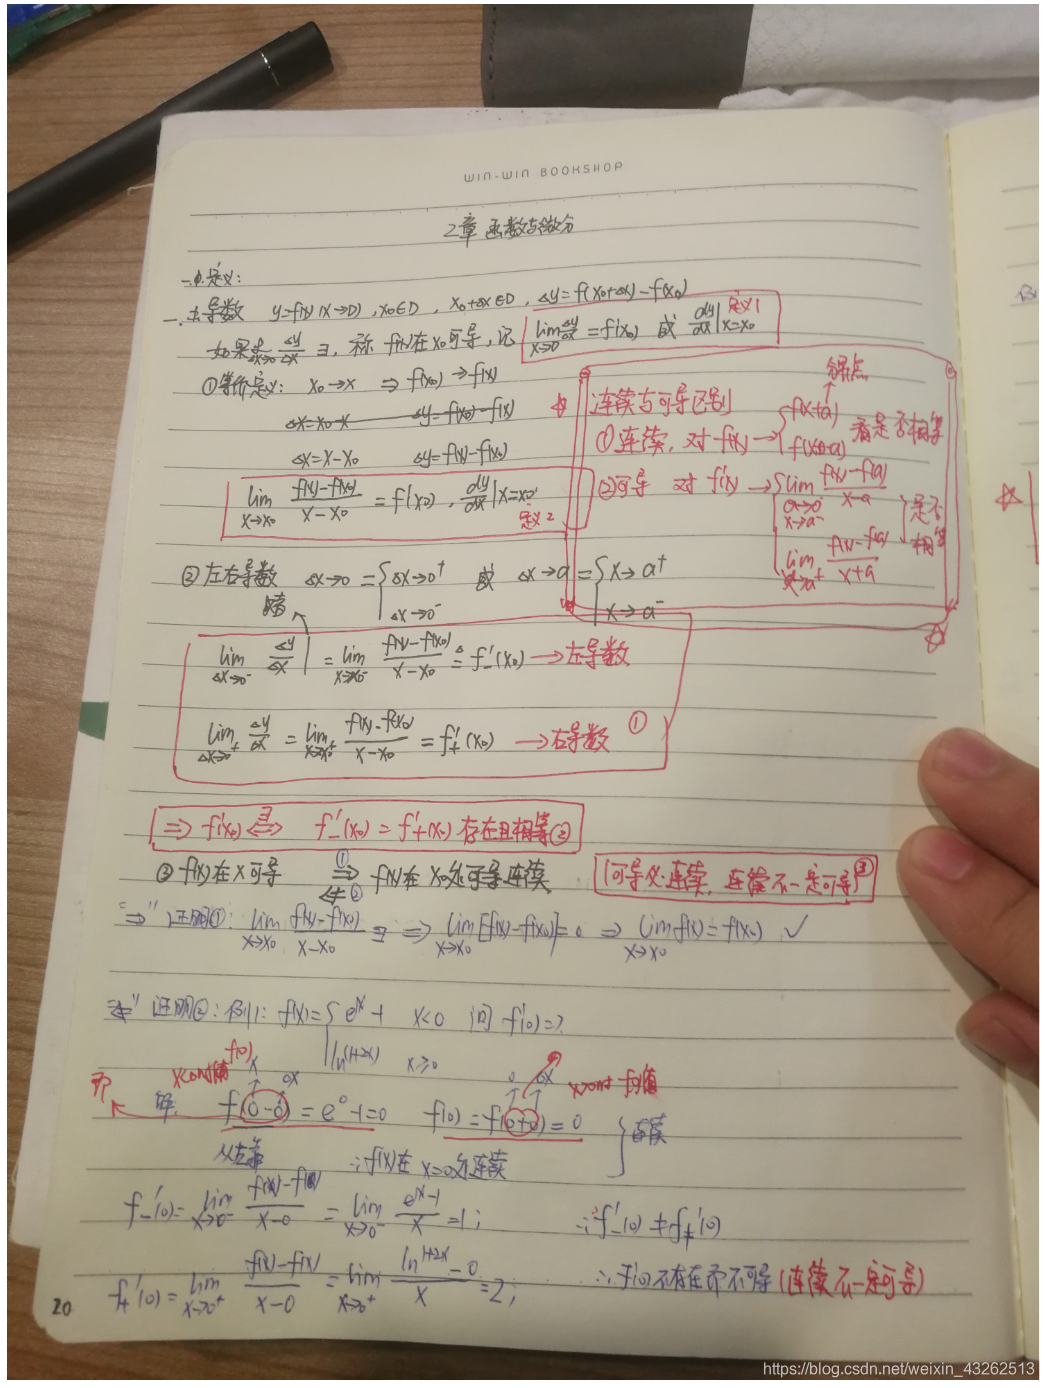 WIN-WIN BOOKSHOP
2章 函数与微分
一.定义:
一. 导数 y=f(x) (x→D), x₀∈D, x₀+Δx∈D, Δy=f(x₀+Δx)-f(x₀)
如果 lim Δx→0 Δy/Δx ∃, 称 f(x)在x₀可导, 记 lim x→0 Δy/Δx = f'(x₀) 或 dy/dx|x=x₀ 定义1
①等价定义: x₀→x ⇒ f(x₀)→f(x)
Δx=x₀-x Δy=f(x₀)-f(x)
Δx=x-x₀ Δy=f(x)-f(x₀)
lim x→x₀ (f(x)-f(x₀))/(x-x₀) = f'(x₀), dy/dx|x=x₀ 定义2
连续与可导区别
①连续, 对f(x) → { f(x+a) f(x-a) 看是否相等
②可导 对f'(x) → { lim x→a⁻ (f(x)-f(a))/(x-a)
lim x→a⁺ (f(x)-f(a))/(x+a) 是否相等
②左右导数 Δx→0 = { Δx→0⁺ Δx→0⁻ 或 Δx→a = { x→a⁺ x→a⁻
lim Δx→0⁻ Δy/Δx = lim x→x₀⁻ (f(x)-f(x₀))/(x-x₀) ≜ f'₋(x₀) → 左导数
lim Δx→0⁺ Δy/Δx = lim x→x₀⁺ (f(x)-f(x₀))/(x-x₀) = f'₊(x₀) → 右导数 ①
⇒ f'(x₀) ∃ ⇔ f'₋(x₀) = f'₊(x₀) 存在且相等②
③f(x)在x可导 ①⇒ ⇍② f(x)在x₀处可导连续
(可导必连续, 连续不一定可导) ③
"⇒" 证明①: lim x→x₀ (f(x)-f(x₀))/(x-x₀) ∃ ⇒ lim x→x₀ [f(x)-f(x₀)]=0 ⇒ lim x→x₀ f(x)=f(x₀) ✓
"⇍" 证明②: 例1: f(x)= { eˣ-1 x<0 问f'(0)=?
ln(1+2x) x≥0
解: f(0-0)=e⁰-1=0 f(0)=f(0+0)=0 } 连续
∴f(x)在x=0处连续
f'₋(0)= lim x→0⁻ (f(x)-f(0))/(x-0) = lim x→0⁻ (eˣ-1)/x =1; ∴f'₋(0)≠f'₊(0)
f'₊(0)= lim x→0⁺ (f(x)-f(x))/(x-0) = lim x→0⁺ (ln^(1+2x)-0)/x =2; ∴f'(0)不存在而不可导(连续不一定可导)
20
https://blog.csdn.net/weixin_43262513